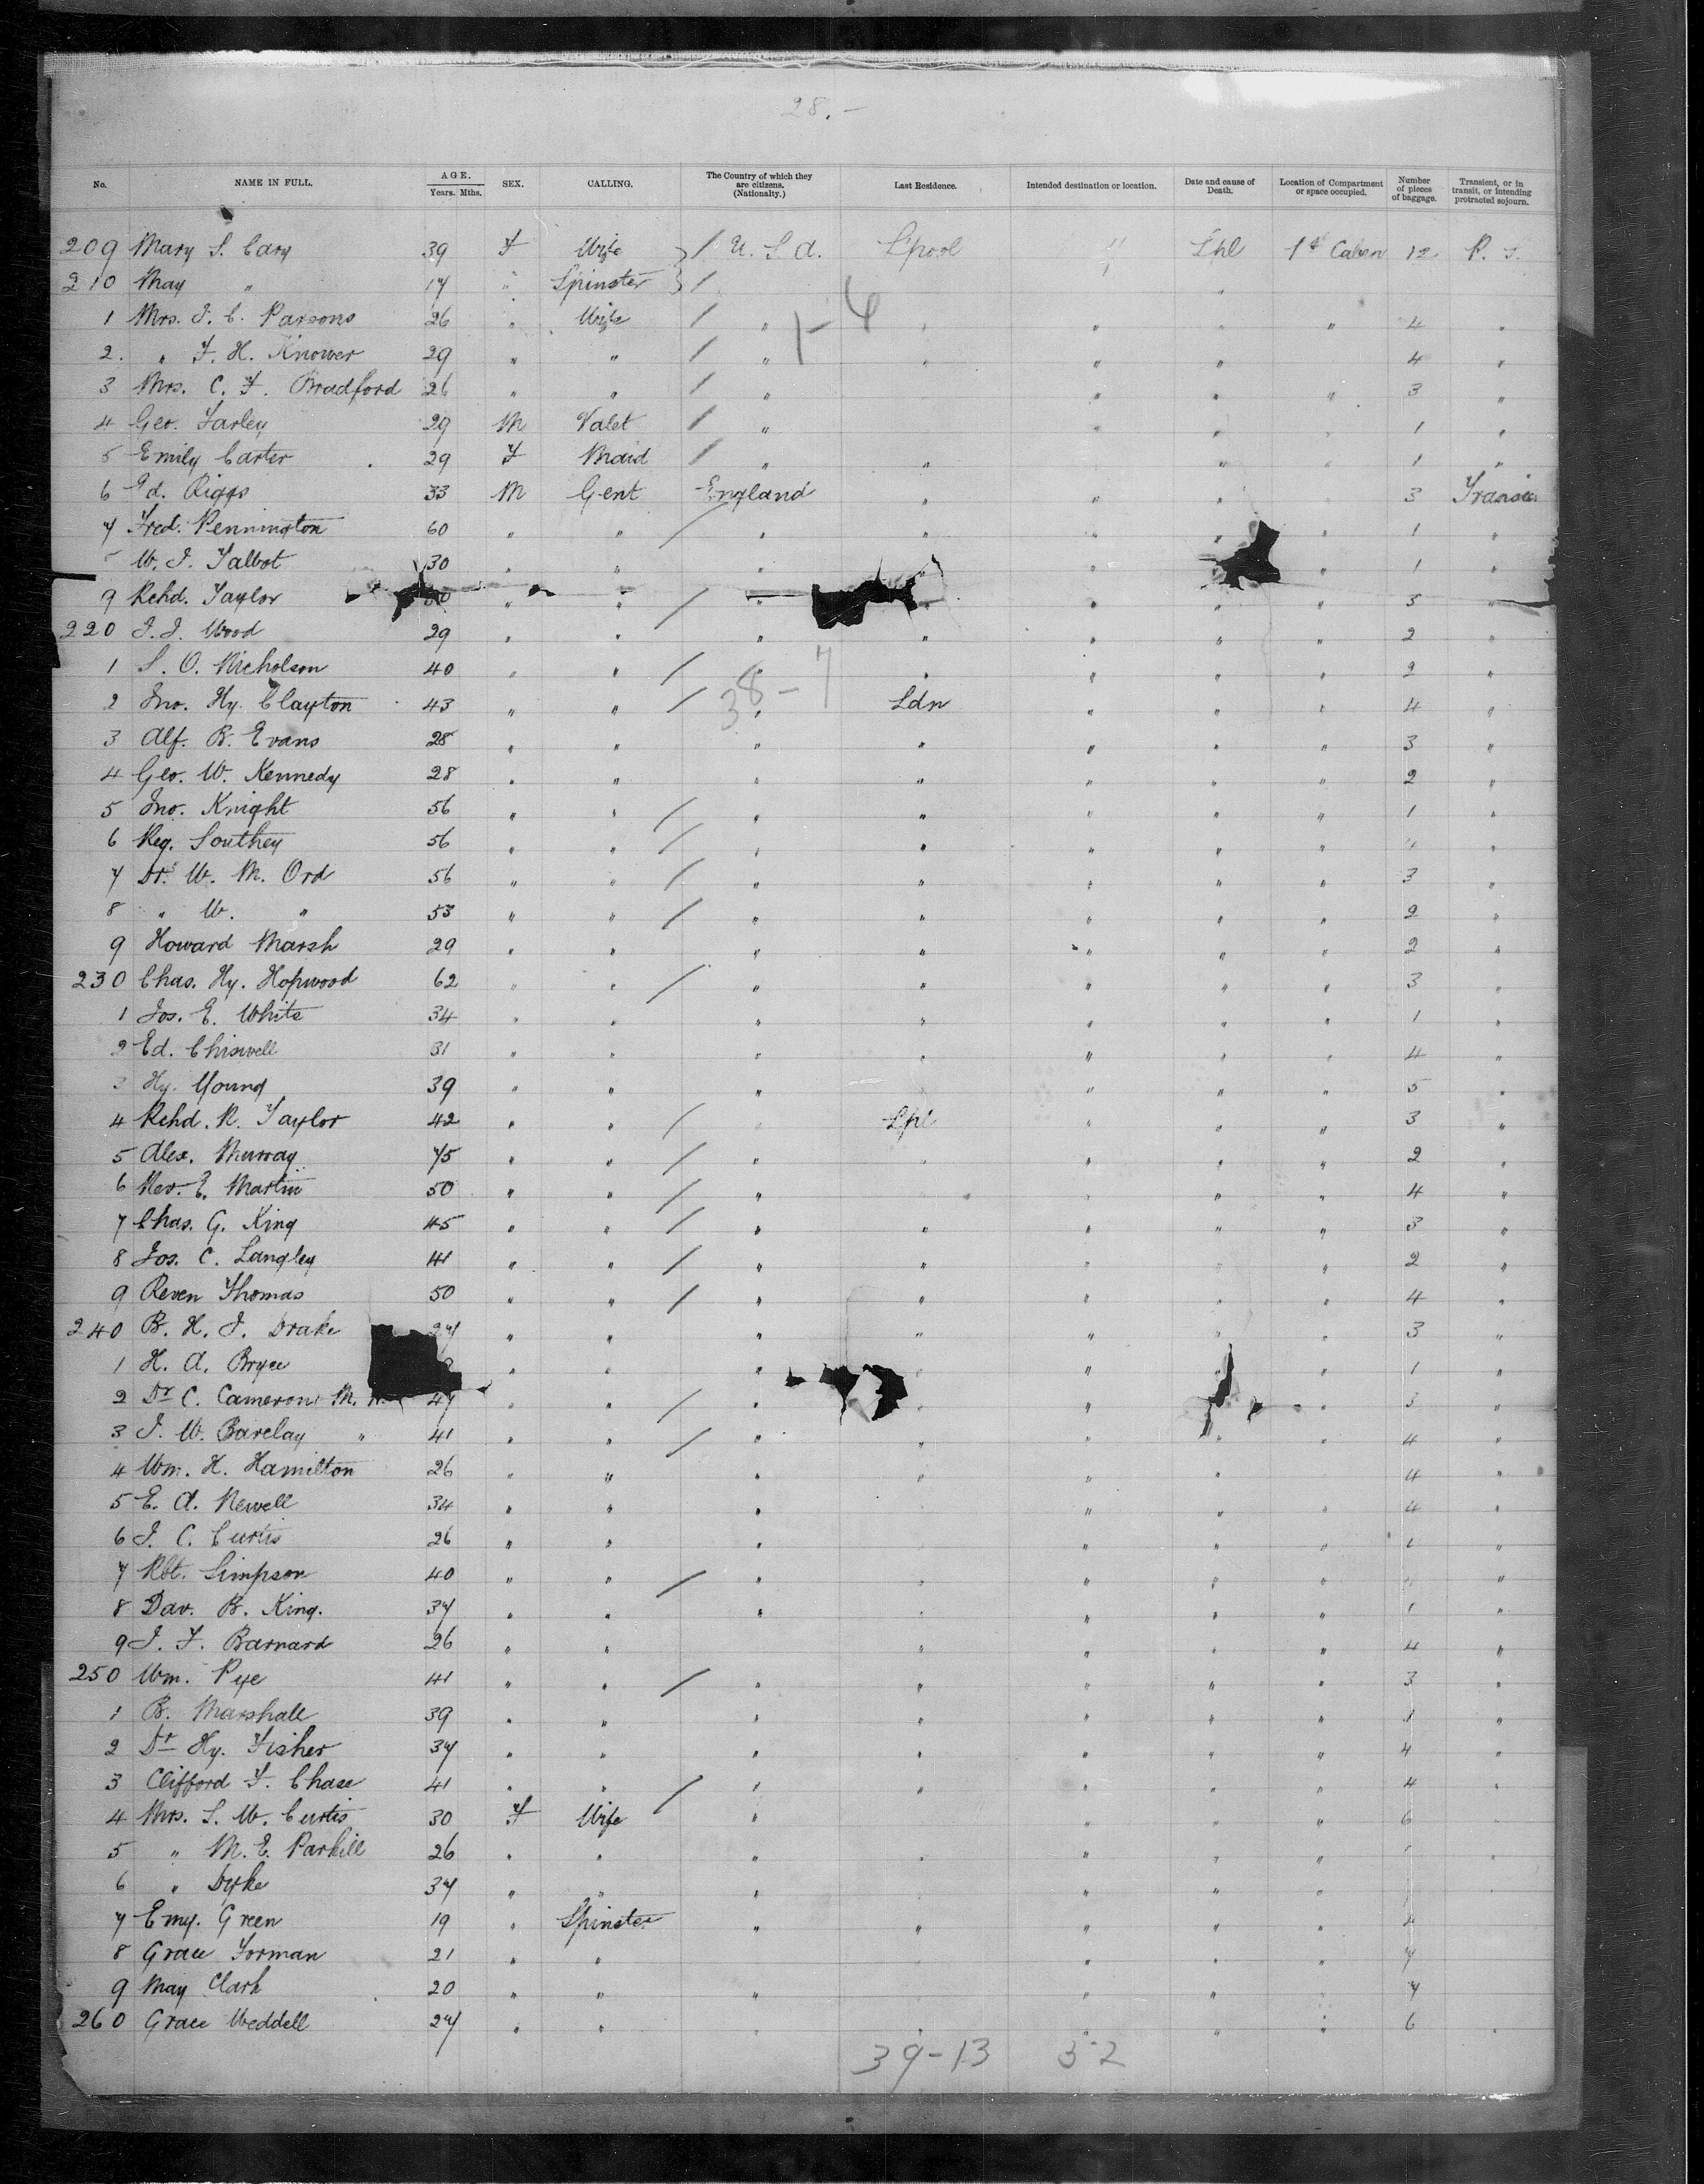 28.-
No. NAME IN FULL. AGE. Years. Mths. SEX. CALLING. The Country of which they are citizens. (Nationality.) Last Residence. Intended destination or location. Date and cause of Death. Location of Compartment or space occupied. Number of pieces of baggage. Transient, or in transit, or intending protracted sojourn.
209 Mary S. Cary 39 F Wife } / U. S. A. L'pool " Lpl 1st Cabin 12 P. S.
210 May " 17 " Spinster } / "
1 Mrs. J. C. Parsons 26 " Wife / " " " " " 4 "
1-4
2. " F. H. Knower 29 " " / " " " " 4 "
3 Mrs. C. F. Bradford 26 " " / " " " " 3 "
4 Geo. Farley 29 M Valet / " " " " 1 "
5 Emily Carter 29 F Maid / " " " " 1 "
6 Ed. Riggs 33 M Gent England " " " 3
7 Fred. Pennington 60 " " / " " " " " 1 "
W. J. Talbot 30 " " " " " " 1 "
9 Rchd. Taylor " " / " " " " " 3 "
220 J. J. Wood 29 " " " " " " " 2 "
1 S. O. Nicholson 40 " " / " " " " " 2 "
38-7
2 Jno. Hy. Clayton 43 " " / " Ldn " " " 4 "
3 Alf. B. Evans 28 " " " " " " " 3 "
4 Geo. W. Kennedy 28 " " " " " " " 2 "
5 Jno. Knight 56 " " / " " " " " 1 "
6 Reg. Southey 56 " " / " " " " " "
7 Dr. W. M. Ord 56 " " / " " " " " 3 "
8 " W. " 53 " " / " " " " " 2 "
9 Howard Marsh 29 " " " " " " " 2 "
230 Chas. Hy. Hopwood 62 " " / " " " " " 3 "
1 Jos. E. White 34 " " " " " " " 1 "
2 Ed. Chiswell 31 " " " " " " " 4 "
3 Hy. Young 39 " " " " " " 5 "
4 Rchd. R. Taylor 42 " " / " Lpl " " " 3 "
5 Alex. Murray 75 " " / " " " " " 2 "
6 Rev. E. Martin 50 " " / " " " " " 4 "
7 Chas. G. King 45 " " / " " " " " 3 "
8 Jos. C. Langley 41 " " / " " " " " 2 "
9 Reven Thomas 50 " " / " " " " " 4 "
240 B. H. J. Drake 27 " " " " " " " 3 "
1 H. A. Bryce " " " " " " 1 "
2 Dr C. Cameron M. 47 " " / " " " " 3 "
3 J. W. Barclay " 41 " " / " " " " " 4 "
4 Wm. H. Hamilton 26 " " " " " " 4 "
5 E. A. Newell 34 " " " " " " 4 "
6 J. C. Curtis 26 " " " " " " 1 "
7 Rbt. Simpson 40 " " / " " " " " "
8 Dav. B. King. 37 " " " " " " 1 "
9 J. F. Barnard 26 " " " " " " 4 "
250 Wm. Pye 41 " " / " " " " " 3 "
1 B. Marshall 39 " " " " " " " 1 "
2 Dr Hy. Fisher 37 " " " " " " " 4 "
3 Clifford F. Chase 41 " " / " " " " " 4 "
4 Mrs. S. W. Curtis 30 F Wife " " " " 6
5 " M. E. Parkill 26 " " " " " " " "
6 " Dyke 37 " " " " " "
7 Emy. Green 19 " Spinster " " " " " 4
8 Grace Forman 21 " " " " " 7
9 May Clark 20 " " " " " 7
260 Grace Weddell 27 " " " " 6
39-13 32